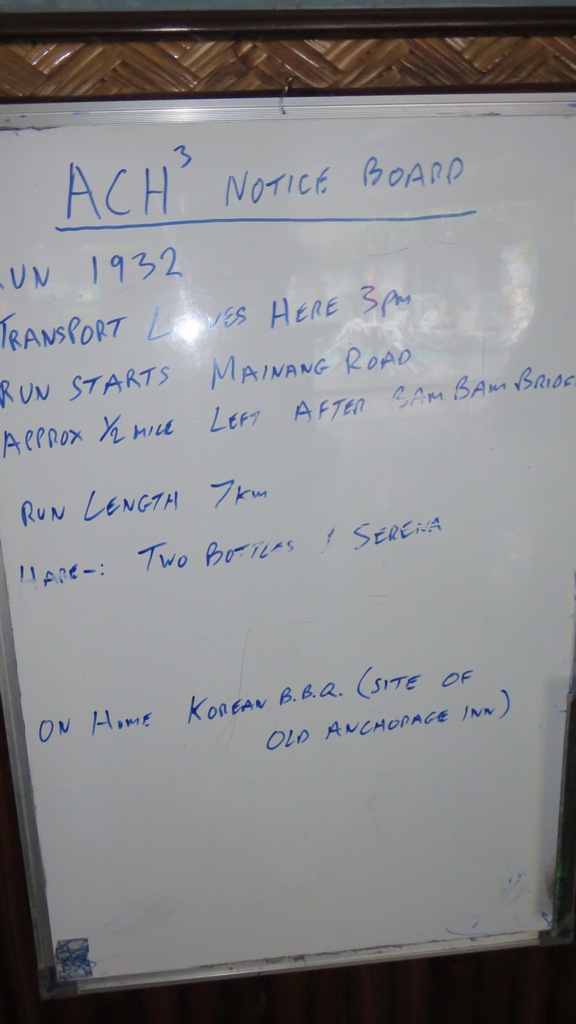 ACH³ NOTICE BOARD
RUN 1932
TRANSPORT LEAVES HERE 3pm
RUN STARTS MAINANG ROAD
APPROX 1/2 MILE LEFT AFTER BAM BAM BRIDGE
RUN LENGTH 7km
HARE-: TWO BOTTLES / SERENA
ON HOME KOREAN B.B.Q. (SITE OF
OLD ANCHORAGE INN)